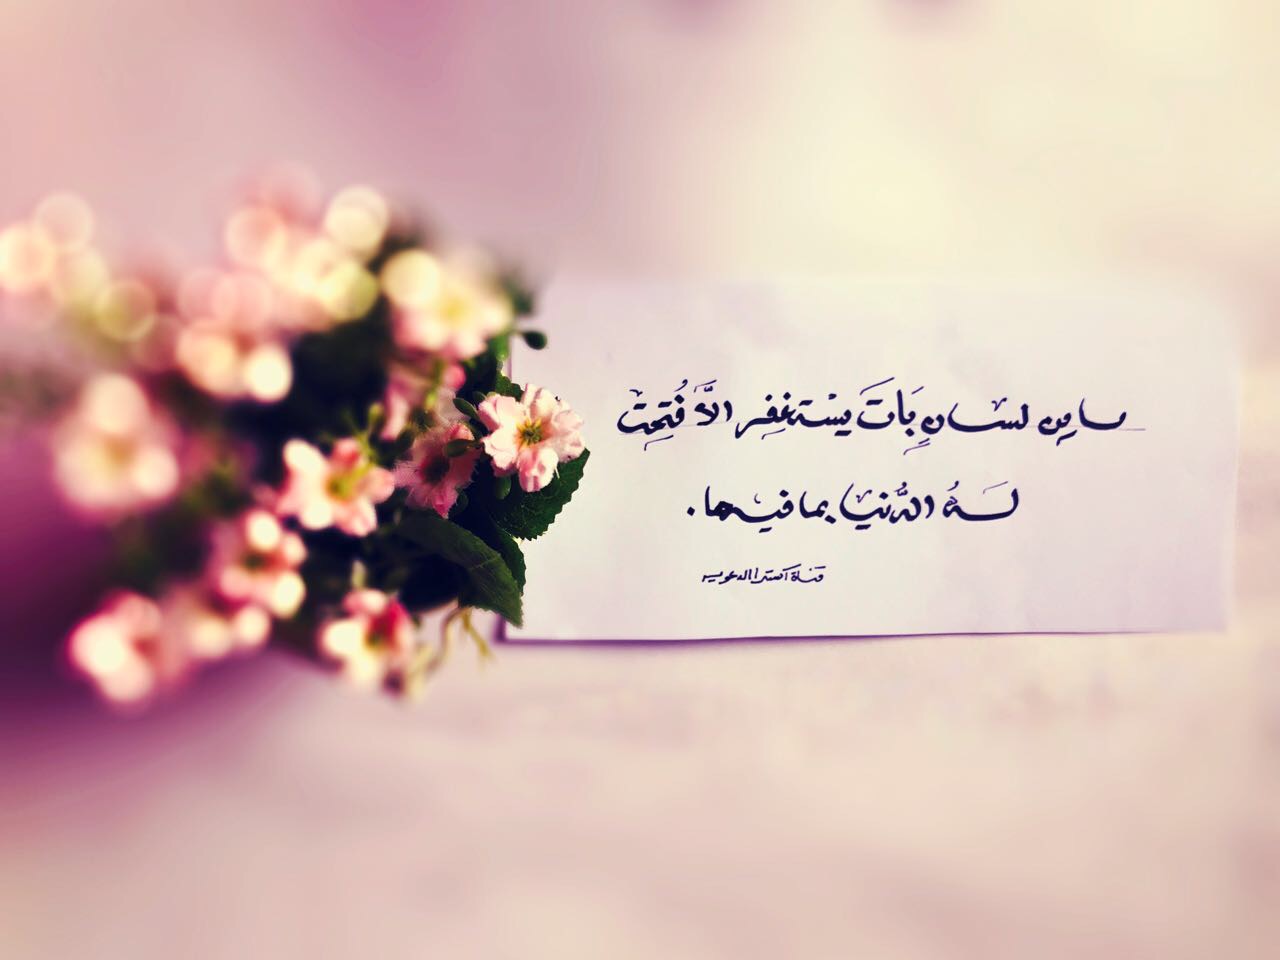 ما من لسانٍ بَاتَ يستغفِر الَّا فُتحِت
لَهُ الدُّنيا بما فيها.
قناة اكسترا الدعويه